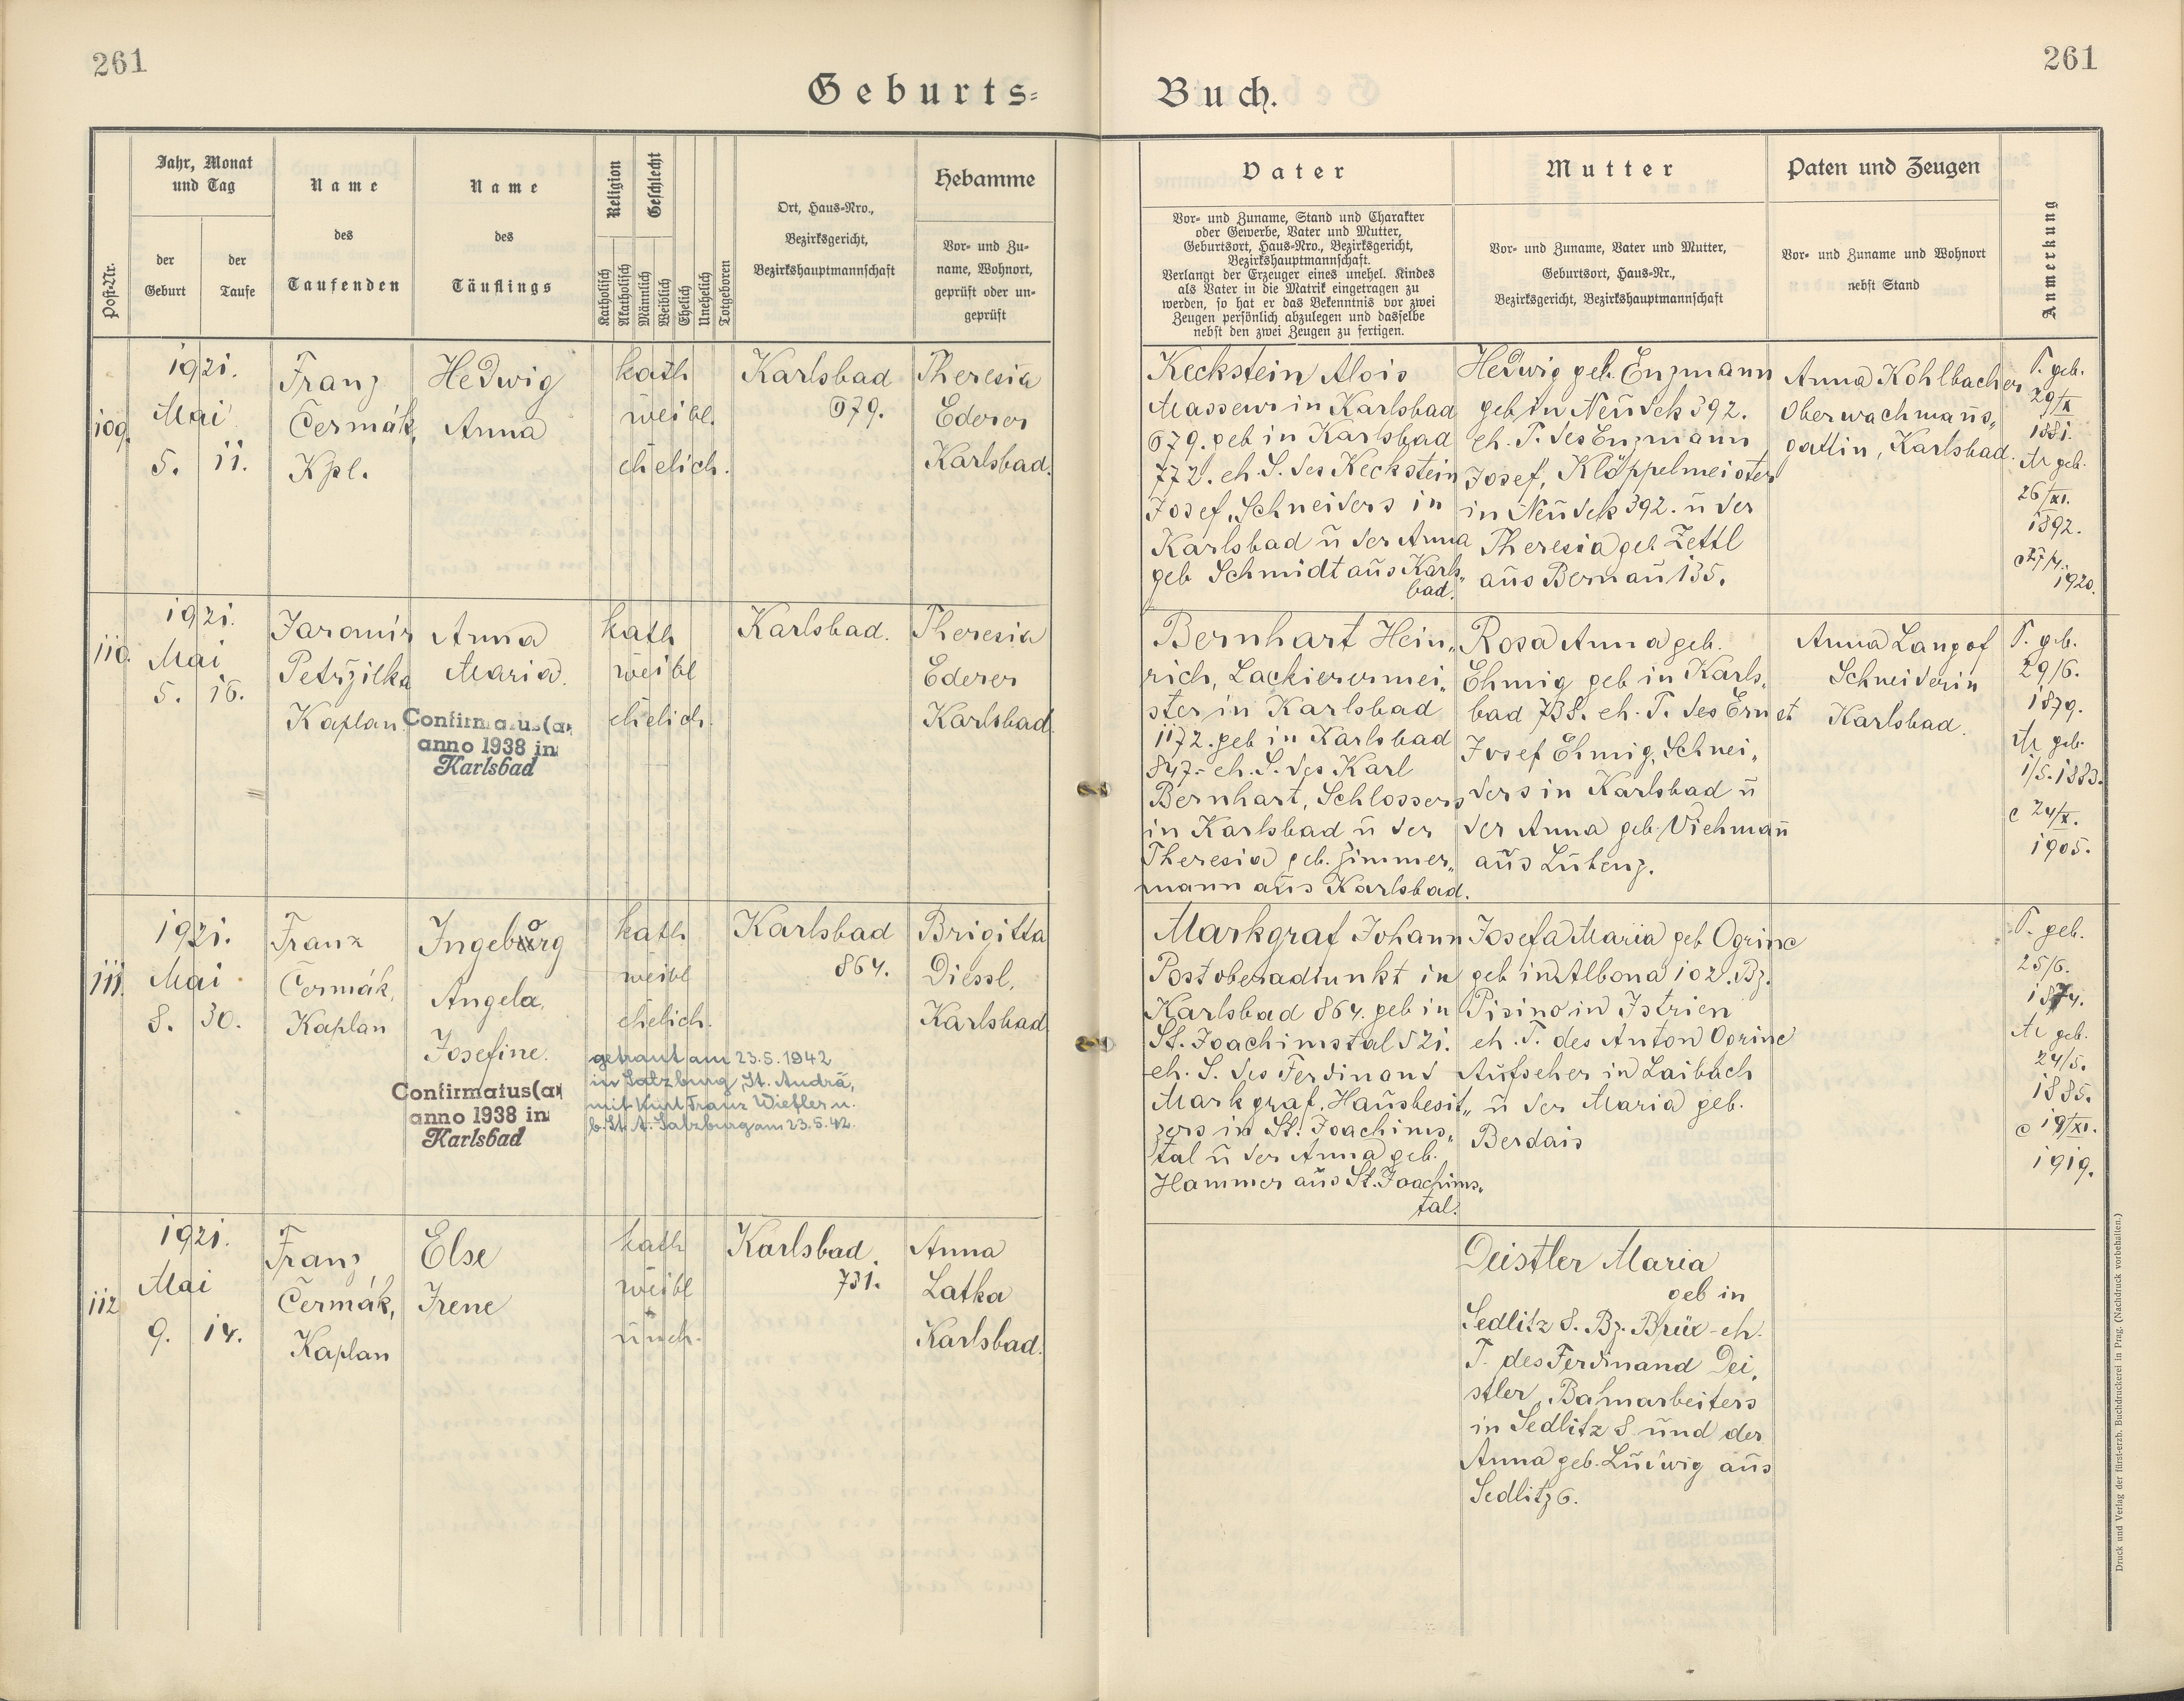 261
261
Geburts=
Buch.
Post-Nr.
Jahr, Monat
und Tag
der
Geburt
der
Taufe
Name
des
Taufenden
Name
des
Täuflings
Religion
Geschlecht
Katholisch
Akatholisch
Männlich
Weiblich
Ehelich
Unehelich
Totgeboren
Ort, Haus-Nro.,
Bezirksgericht,
Bezirkshauptmannschaft
Hebamme
Vor- und Zu-
name, Wohnort,
geprüft oder un-
geprüft
Vater
Vor- und Zuname, Stand und Charakter
oder Gewerbe, Vater und Mutter,
Geburtsort, Haus-Nro., Bezirksgericht,
Bezirkshauptmannschaft.
Verlangt der Erzeuger eines unehel. Kindes
als Vater in die Matrik eingetragen zu
werden, so hat er das Bekenntnis vor zwei
Zeugen persönlich abzulegen und dasselbe
nebst den zwei Zeugen zu fertigen.
Mutter
Vor- und Zuname, Vater und Mutter,
Geburtsort, Haus-Nr.,
Bezirksgericht, Bezirkshauptmannschaft
Paten und Zeugen
Vor- und Zuname und Wohnort
nebst Stand
Anmerkung
109.
1921.
Mai
5. 11.
Franz
Čermák,
Kpl.
Hedwig
Anna
kath
weibl.
ehelich.
Karlsbad
679.
Theresia
Ederer
Karlsbad.
Keckstein Alois
Masseur in Karlsbad
679. geb in Karlsbad
772. eh. S. des Keckstein
Josef, Schneiders in
Karlsbad ū der Anna
geb Schmidt aus Karls„
bad.
Hedwig geb. Enzmann
geb in Neudek 392.
eh. T. des Enzmann
Josef, Klöppelmeister
in Neudek 392. ū der
Theresia geb Zettl
aus Bernau 135.
Anna Kohlbacher
Oberwachmanns„
gattin, Karlsbad.
V. geb.
29/X
1881.
M geb.
26/XI.
1892.
1920.
110.
1921.
Mai
5. 16.
Jaromir
Petržilka
Kaplan
Anna
Maria.
Confirmatus(a)
anno 1938 in
Karlsbad
kath
weibl
ehelich.
Karlsbad.
Theresia
Ederer
Karlsbad.
Bernhart Hein„
rich, Lackierermei„
ster in Karlsbad
1172. geb in Karlsbad
847.- eh. S. des Karl
Bernhart, Schlossers
in Karlsbad ū der
Theresia geb. Zimmer„
mann aus Karlsbad.
Rosa Anna geb.
Ehmig geb in Karls„
bad 738. eh. T. des Ernst
Josef Ehmig, Schnei„
ders in Karlsbad ū
der Anna geb. Viehmañ
aus Lubenz.
Anna Langof
Schneiderin
Karlsbad.
V. geb.
29/6.
1879.
M geb.
1/5. 1883.
c 24/X.
1905.
111.
1921.
Mai
8. 30.
Franz
Čermák,
Kaplan
Ingeborg
Angela
Josefine.
Confirmatus(a)
anno 1938 in
Karlsbad
kath
weibl
ehelich.
getraut am 23.5.1942
in Salzburg, St. Andrä,
mit Kurt Franz Wiefler u.
b. St. A. Salzburg am 23.5.42.
Karlsbad
864.
Brigitta
Diessl,
Karlsbad.
Markgraf Johann
Postoberadjunkt in
Karlsbad 864. geb in
St. Joachimstal 521.
eh. S. des Ferdinand
Markgraf, Hausbesit„
zers in St. Joachims„
tal ū der Anna geb.
Hammer aus St. Joachims„
tal.
Josefa Maria geb Ogrinc
geb in Albona 102. Bz.
Pisino in Istrien
eh. T. des Anton Ogrinc
Aufseher in Laibach
ū der Maria geb.
Berdais
V. geb.
25/6.
1874.
M geb.
24/5.
1885.
c 19/XI.
1919.
112
1921.
Mai
9. 14.
Franz
Čermák,
Kaplan
Else
Irene
kath
weibl
uneh.
Karlsbad
731.
Anna
Latka
Karlsbad.
Deistler Maria
geb in
Sedlitz 8. Bz. Brüx - eh.
T. des Ferdinand Dei„
stler, Bahnarbeiters
in Sedlitz 8 und der
Anna geb. Ludwig aus
Sedlitz 6.
Druck und Verlag der fürst-erzb. Buchdruckerei in Prag. (Nachdruck vorbehalten.)